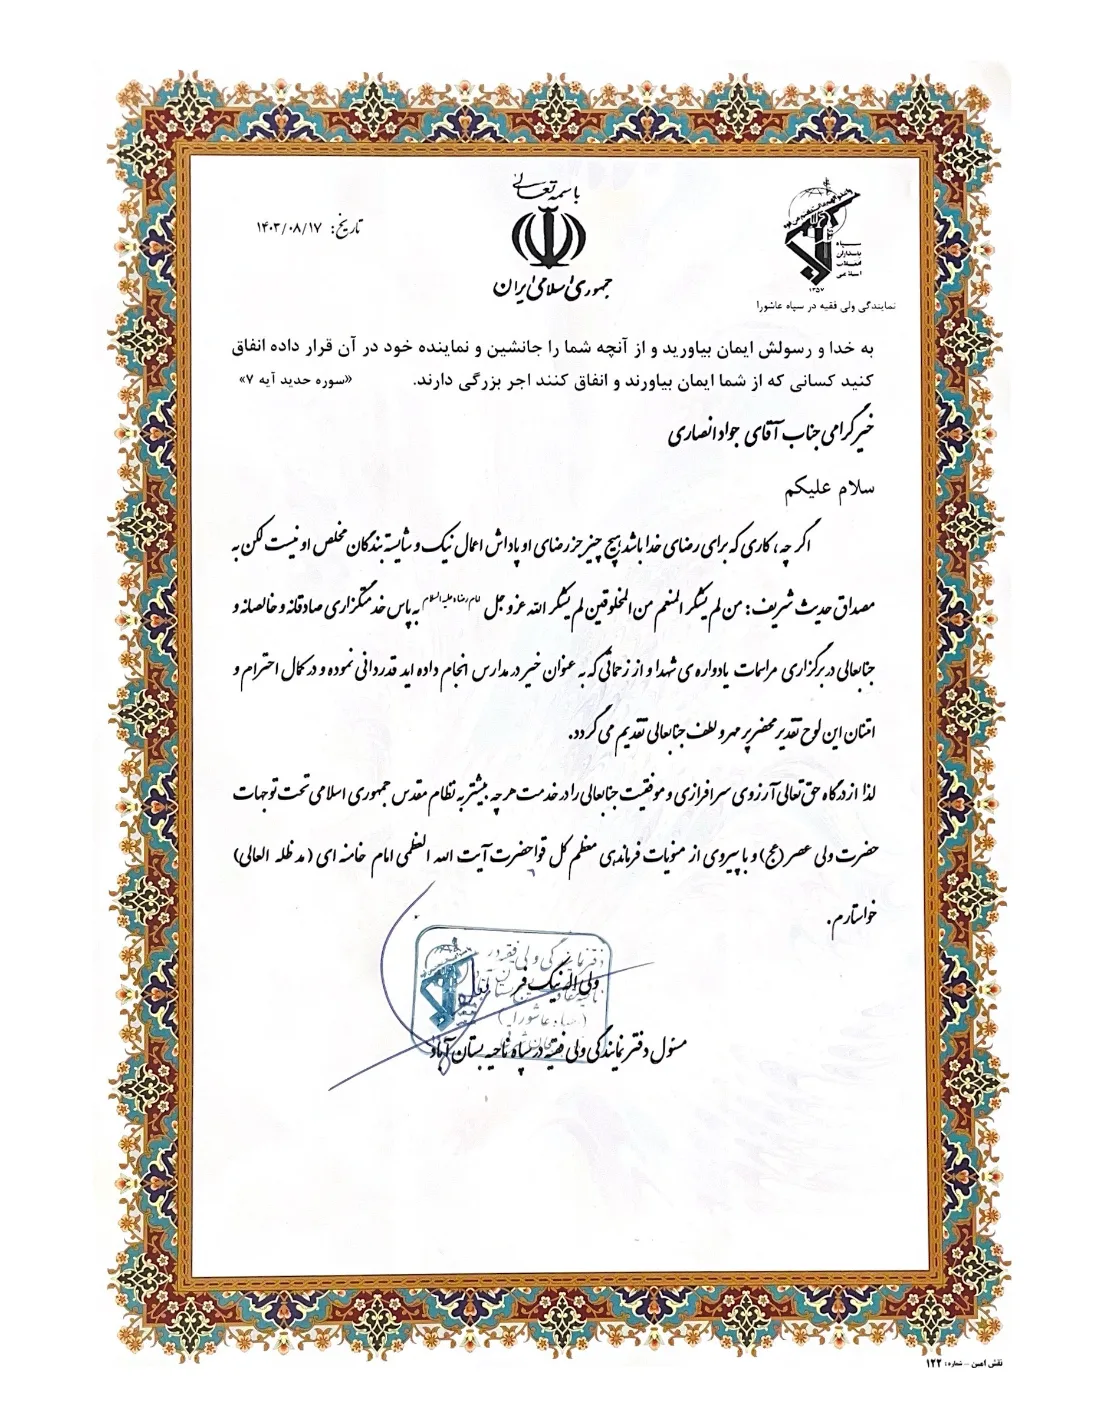 باسمه تعالی
جمهوری اسلامی ایران
تاریخ: ۱۴۰۳/۰۸/۱۷
سپاه
پاسداران
انقلاب
اسلامی
۱۳۵۷
نمایندگی ولی فقیه در سپاه عاشورا
به خدا و رسولش ایمان بیاورید و از آنچه شما را جانشین و نماینده خود در آن قرار داده انفاق
کنید کسانی که از شما ایمان بیاورند و انفاق کنند اجر بزرگی دارند. «سوره حدید آیه ۷»
خیر گرامی جناب آقای جواد انصاری
سلام علیکم
اگر چه، کاری که برای رضای خدا باشد هیچ چیز جز رضای او پاداش اعمال نیک و شایسته بندگان مخلص او نیست لکن به
مصداق حدیث شریف: من لم یشکر المنعم من المخلوقین لم یشکر الله عزوجل امام رضا علیه السلام به پاس خدمتگزاری صادقانه و خالصانه و
جنابعالی در برگزاری مراسمات یادواره ی شهدا و از زحماتی که به عنوان خیر در مدارس انجام داده اید قدردانی نموده و در کمال احترام و
امتنان این لوح تقدیر محضر پر مهر و لطف جنابعالی تقدیم می گردد.
لذا از درگاه حق تعالی آرزوی سرافرازی و موفقیت جنابعالی را در خدمت هر چه بیشتر به نظام مقدس جمهوری اسلامی تحت توجهات
حضرت ولی عصر (عج) و با پیروی از منویات فرماندهی معظم کل قوا حضرت آیت الله العظمی امام خامنه ای (مد ظله العالی)
خواستارم.
ولی اله نیک فر
مسئول دفتر نمایندگی ولی فقیه در سپاه ناحیه بستان آباد
نقش امین – شماره: ۱۲۲